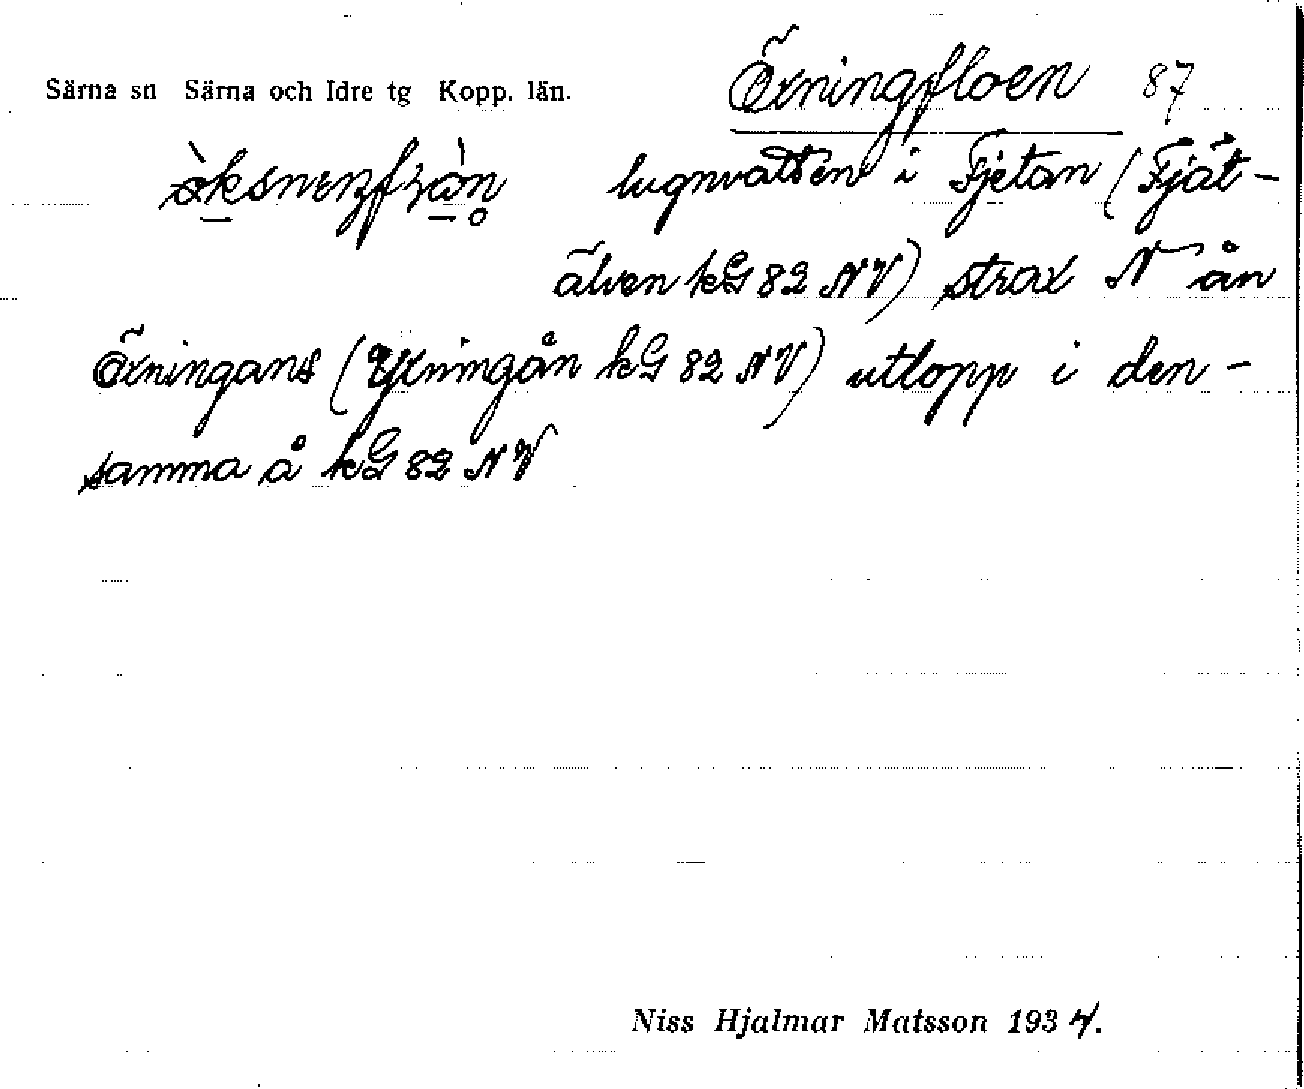 Särna sn Särna och Idre tg Kopp. län. Öxningfloen 87
lugnvatten i Fjetan (Fjät-
älven kG 82 NV) strax N ån
Öxningans (Yxningån kG 82 NV) utlopp i den-
samma å kG 82 NV
Niss Hjalmar Matsson 1934.